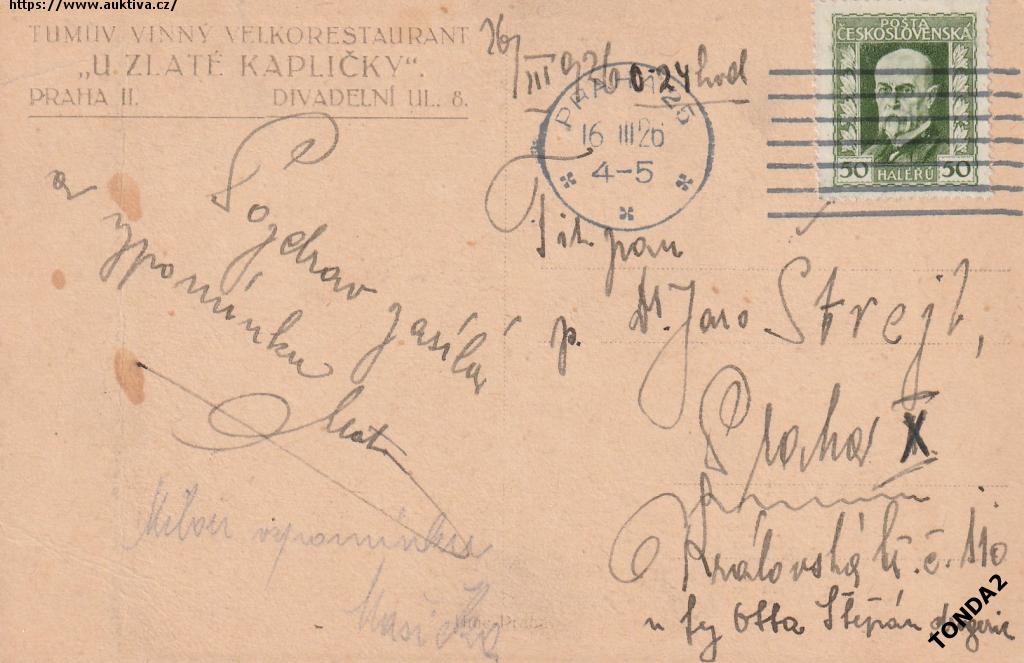 https://www.auktiva.cz/
TŮMŮV VINNÝ VELKORESTAURANT
„U ZLATÉ KAPLIČKY“.
PRAHA II. DIVADELNÍ UL. 8.
26/III 1926 0-24 hod
PRAHA 25
16 III 26
4-5
POŠTA
ČESKOSLOVENSKÁ
50 HALÉRŮ 50
Pozdrav zasílá
a vzpomínku
Tit. pan
p. Dr. Jaro Strejt,
Praha X.
Královská tř. č. 110
u fy Otta Štěpán drogerie
vzpomínku
TONDA2